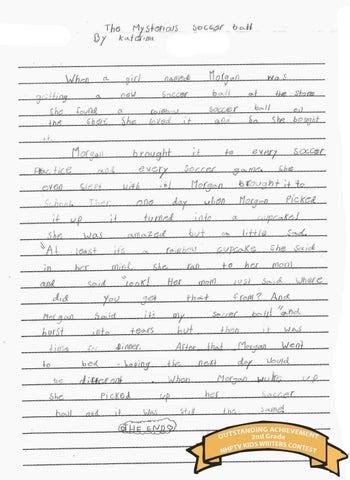 The Mysterious soccer ball
By Katerina
When a girl named Morgan was
getting a new soccer ball at the store
she found a rainbow soccer ball on
the shelf. She loved it and so she bought
it.
Morgan brought it to every soccer
practice and every soccer game. She
even slept with it! Morgan brought it to
School. Then one day when Morgan picked
it up it turned into a cupcake!
she was amazed but a little sad.
"At least it's a rainbow cupcake she said
in her mind. she ran to her mom
and said "look! Her mom just said where
did you get that from? And
Morgan said it's my soccer ball! "and
burst into tears but then it was
time for dinner. After that Morgan went
to bed hoping the next day would
be different. When Morgan up
She picked up her soccer
ball and it was still the same!
THE END
OUTSTANDING ACHIEVEMENT
2nd Grade
NHPTV KIDS WRITERS CONTEST